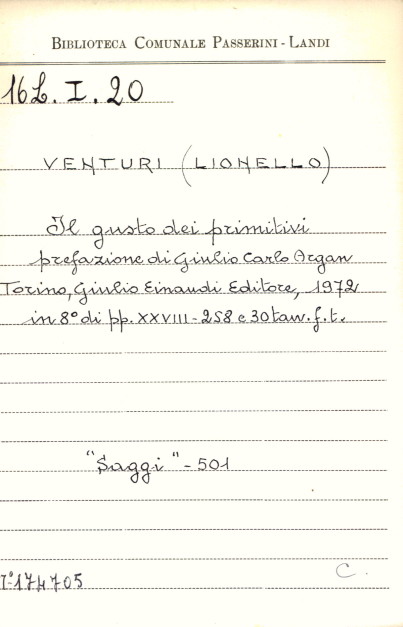 BIBLIOTECA COMUNALE PASSERINI - LANDI
16L. I. 20
VENTURI (LIONELLO)
Il gusto dei primitivi
prefazione di Giulio Carlo Argan
Torino, Giulio Einaudi Editore, 1972
in 8° di pp. XXVIII - 258 e 30 tav. f. t.
"Saggi" - 501
I° 174705
C.